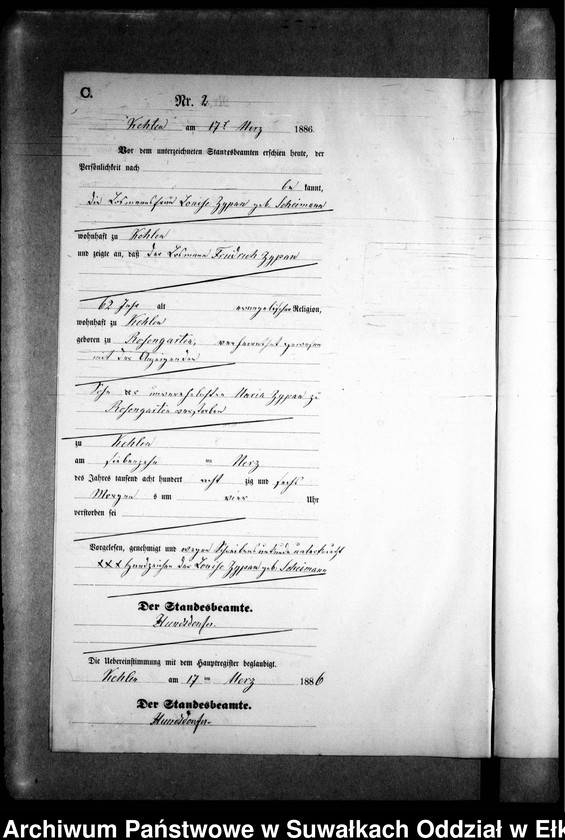 C.
Nr. 2
Kehlen am 17t Merz 1886.
Vor dem unterzeichneten Standesbeamten erschien heute, der
Persönlichkeit nach
be kannt,
die Losmannsfrau Louise Zypan geb. Scheimann
wohnhaft zu Kehlen
und zeigte an, daß der Losmann Friedrich Zypan
62 Jahr alt evangelischer Religion,
wohnhaft zu Kehlen
geboren zu Rosengarten, verheirathet gewesen
mit der Anzeigenden
Sohn der unverehelichten Maria Zypan zu
Rosengarten verstorben
zu Kehlen
am siebenzehn ten Merz
des Jahres tausend acht hundert acht zig und sechs
Morgen s um vier Uhr
verstorben sei
Vorgelesen, genehmigt und wegen Schreibensunkunde unterkreuzt
XXX Handzeichen der Louise Zypan geb. Scheimann
Der Standesbeamte.
Hundsdorfer
Die Uebereinstimmung mit dem Hauptregister beglaubigt.
Kehlen am 17 ten Merz 1886
Der Standesbeamte.
Hundsdorfer
Archiwum Państwowe w Suwałkach Oddział w Ełk